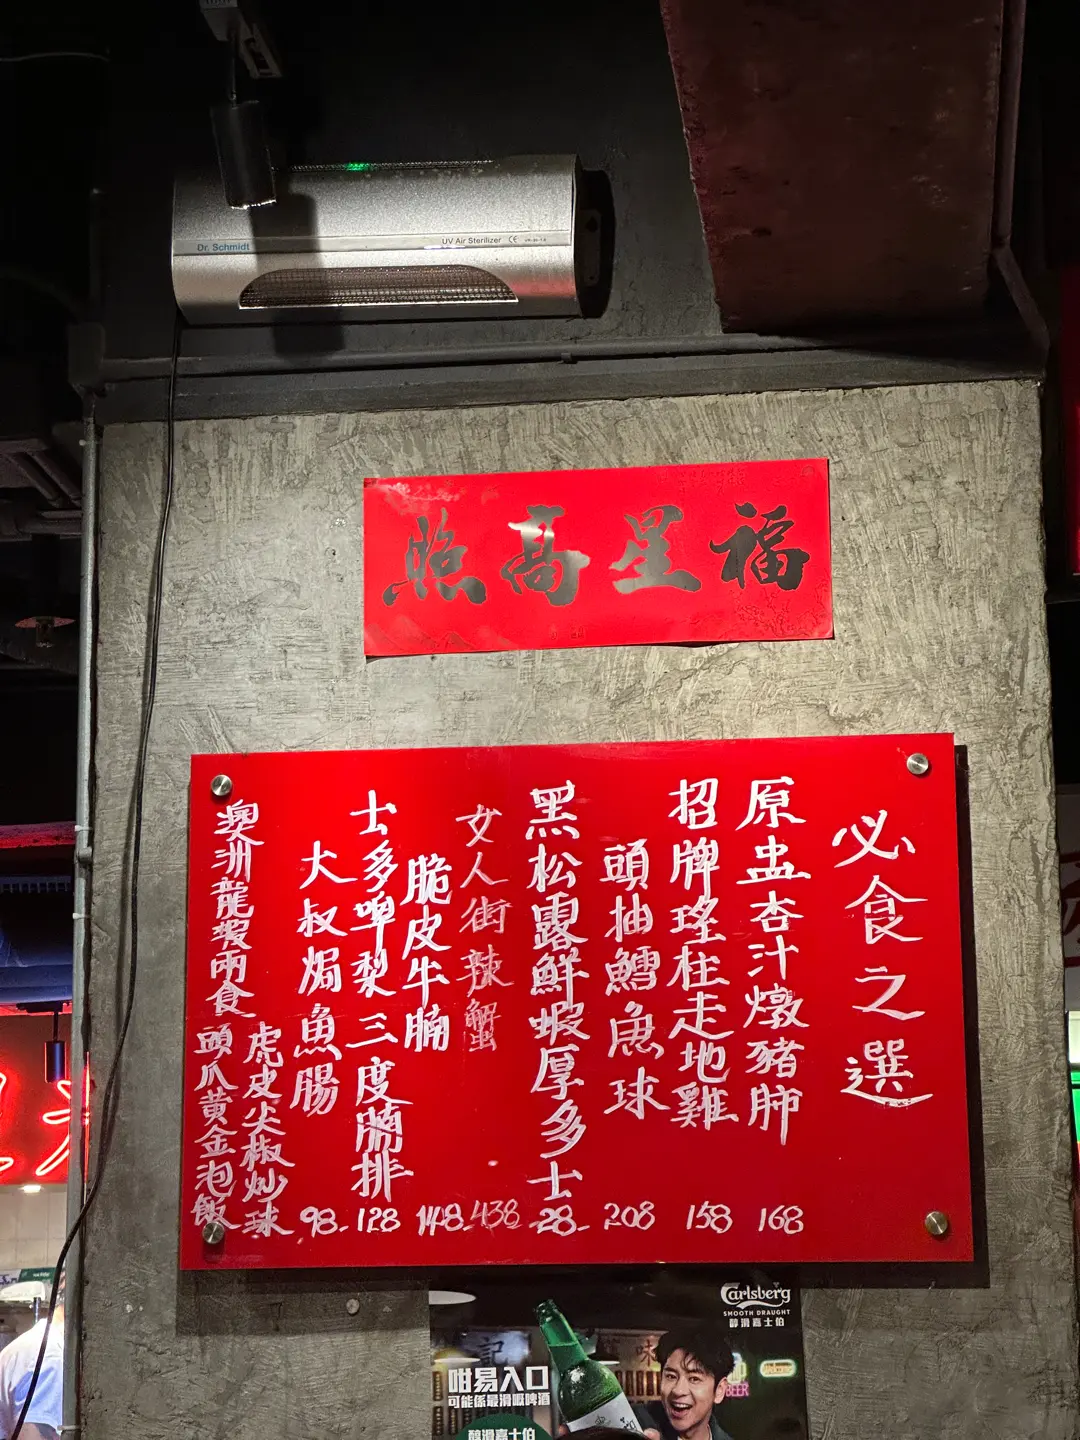 Dr. Schmidt
UV Air Sterilizer CE
福星高照
必食之選
原盅杏汁燉豬肺 168
招牌瑤柱走地雞 158
頭抽鱈魚球 208
黑松露鮮蝦厚多士 28
女人街辣蟹 438
脆皮牛腩 148
士多啤梨三度腩排 128
大叔焗魚腸 98
澳洲龍蝦兩食
虎皮尖椒炒球
頭爪黄金泡飯
Carlsberg
SMOOTH DRAUGHT
醇滑嘉士伯
咁易入口
可能係最滑嘅啤酒
醇滑嘉士伯
記
味
BEER